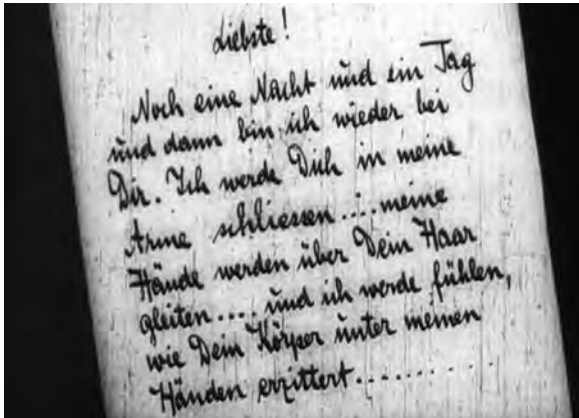 Liebste!
Noch eine Nacht und ein Tag
und dann bin ich wieder bei
Dir. Ich werde Dich in meine
Arme schliessen....meine
Hände werden über Dein Haar
gleiten.... und ich werde fühlen,
wie Dein Körper unter meinen
Händen erzittert..........